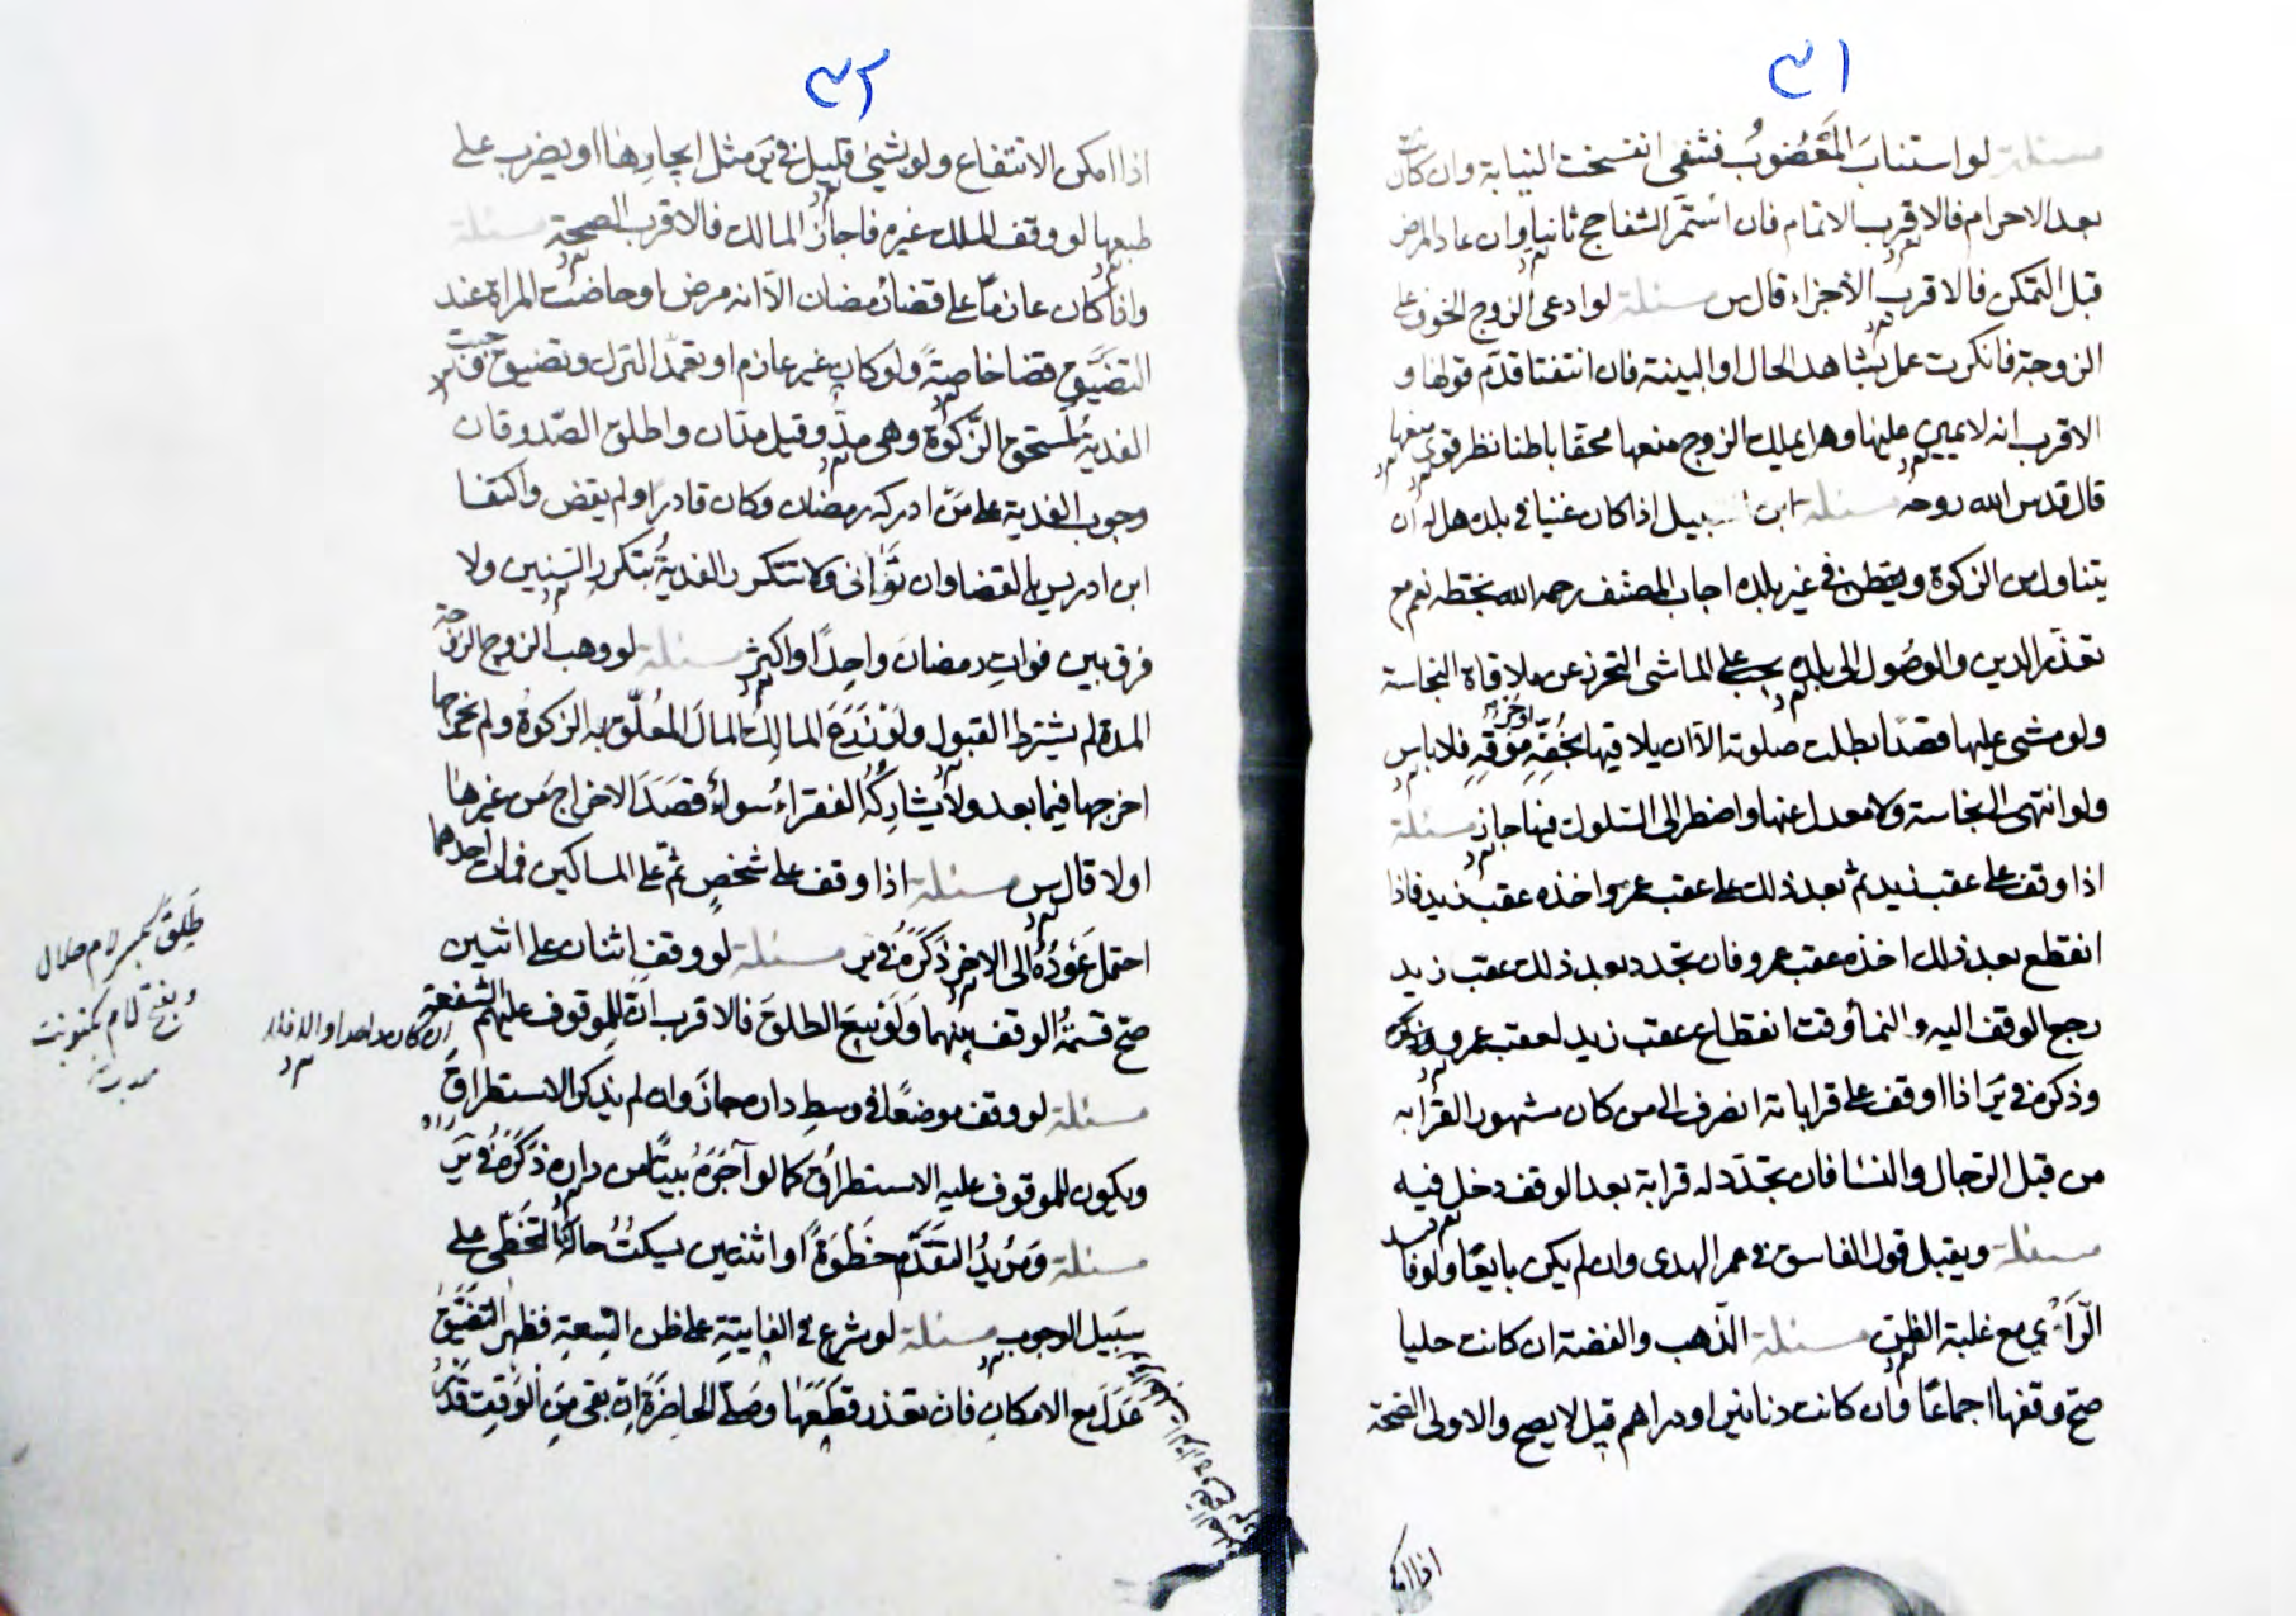 ٣١
مسئلة لو استناب المعضوب فشفى انفسخت النيابة وان كان
بعد الاحرام فالاقرب الاتمام فان استمر الشفا حج ثانيا وان عاد المرض
قبل التمكن فالاقرب الاجزاء قال س مسئلة لو ادعى الزوج الخوف على
الزوجة فانكرت عمل بشاهد الحال او البينة فان انتفتا قدم قولها و
الاقرب انه لا يمين عليها وهل يملك الزوج منعها محقا باطنا نظر قوى منعها
قال قدس الله روحه مسئلة ابن السبيل اذا كان غنيا في بلده هل له ان
يتناول من الزكوة و في غير بلده اجاب المصنف رحمه الله بخطه نعم مع
تعذر الدين والوصول الى بلده يجب على الماشى التحرز عن ملاقاة النجاسة
ولو مشى عليها قصدا بطلت صلوته الا ان يلاقيها بخفه فلا باس
ولو انتهى الى نجاسة ولا معدل عنها واضطر الى السلوك فيها جاز مسئلة
اذا وقف على عقب زيد ثم بعد ذلك على عقب عمرو اخذه عقب زيد فاذا
انقطع بعد ذلك اخذه عقب عمرو فان تجدد بعد ذلك عقب زيد
رجع الوقف اليه و النما وقت انقطاع عقب زيد لعقب عمرو
وذكره في ير اذا اوقف على قراباته انصرف الى من كان مشهور القرابه
من قبل الرجال والنسا فان تجدد له قرابة بعد الوقف دخل فيه
مسئلة ويقبل قول الفاسق في الهدى وان لم يكن بايعا
الرأي مع غلبة الظن مسئلة الذهب والفضة ان كانت حليا
صح وقفها اجماعا وان كانت دنانير او دراهم قيل لا يصح والاولى الصحة
٣٢
اذا امكن الانتفاع ولو بشئ قليل في ير مثل ايجارها او يضرب على
طبعها لو وقف الملك غيره فاجاز المالك فالاقرب الصحة مسئلة
واذا كان عازما على قضا رمضان الا انه مرض او حاضت المراة عند
التضيق قضا خاصة ولو كان غير عازم او تعمد الترك وتضيق
الفدية لمستحق الزكوة وهى مد وقيل مدان واطلق الصدوقان
وجوب الفدية على من ادركه رمضان وكان قادرا ولم يقض واكتفا
ابن ادريس بالقضا وان توانى ولا تتكرر الفدية بتكرر السنين ولا
فرق بين فوات رمضان واحدا واكثر مسئلة لو وهب الزوج الزوجة
المدة لم يشترط القبول ولو المالك المال المعلق به الزكوة ولم يخرجها
اخرجها فيما بعد ولا يشاركه الفقراء سواء قصد الاخراج من غيرها
اولا قال س مسئلة اذا وقف على شخص ثم على المساكين فمات احدهما
احتمل عوده الى الاخر ذكره في ير مسئلة لو وقف اثنان على اثنين
صح قسمة الوقف بينهما ولو بيع الطلق فالاقرب ان للموقوف عليهم الشفعة
ان كان واحدا والا فلا
مسئلة لو وقف موضعا في وسط داره جاز وان لم يذكر الاستطراق
ويكون للموقوف عليه الاستطراق كما لو آجره بيتا من داره ذكره في ير
مسئلة ومريد التقدم خطوة او اثنتين يسكت حالة التخطى على
سبيل الوجوب مسئلة لو شرع في الفايتة على ظن السعة فظهر التضيق
عدل مع الامكان فان تعذر قطعها وصلى الحاضرة ان بقى من الوقت قدر
طلق بكسر لام حلال